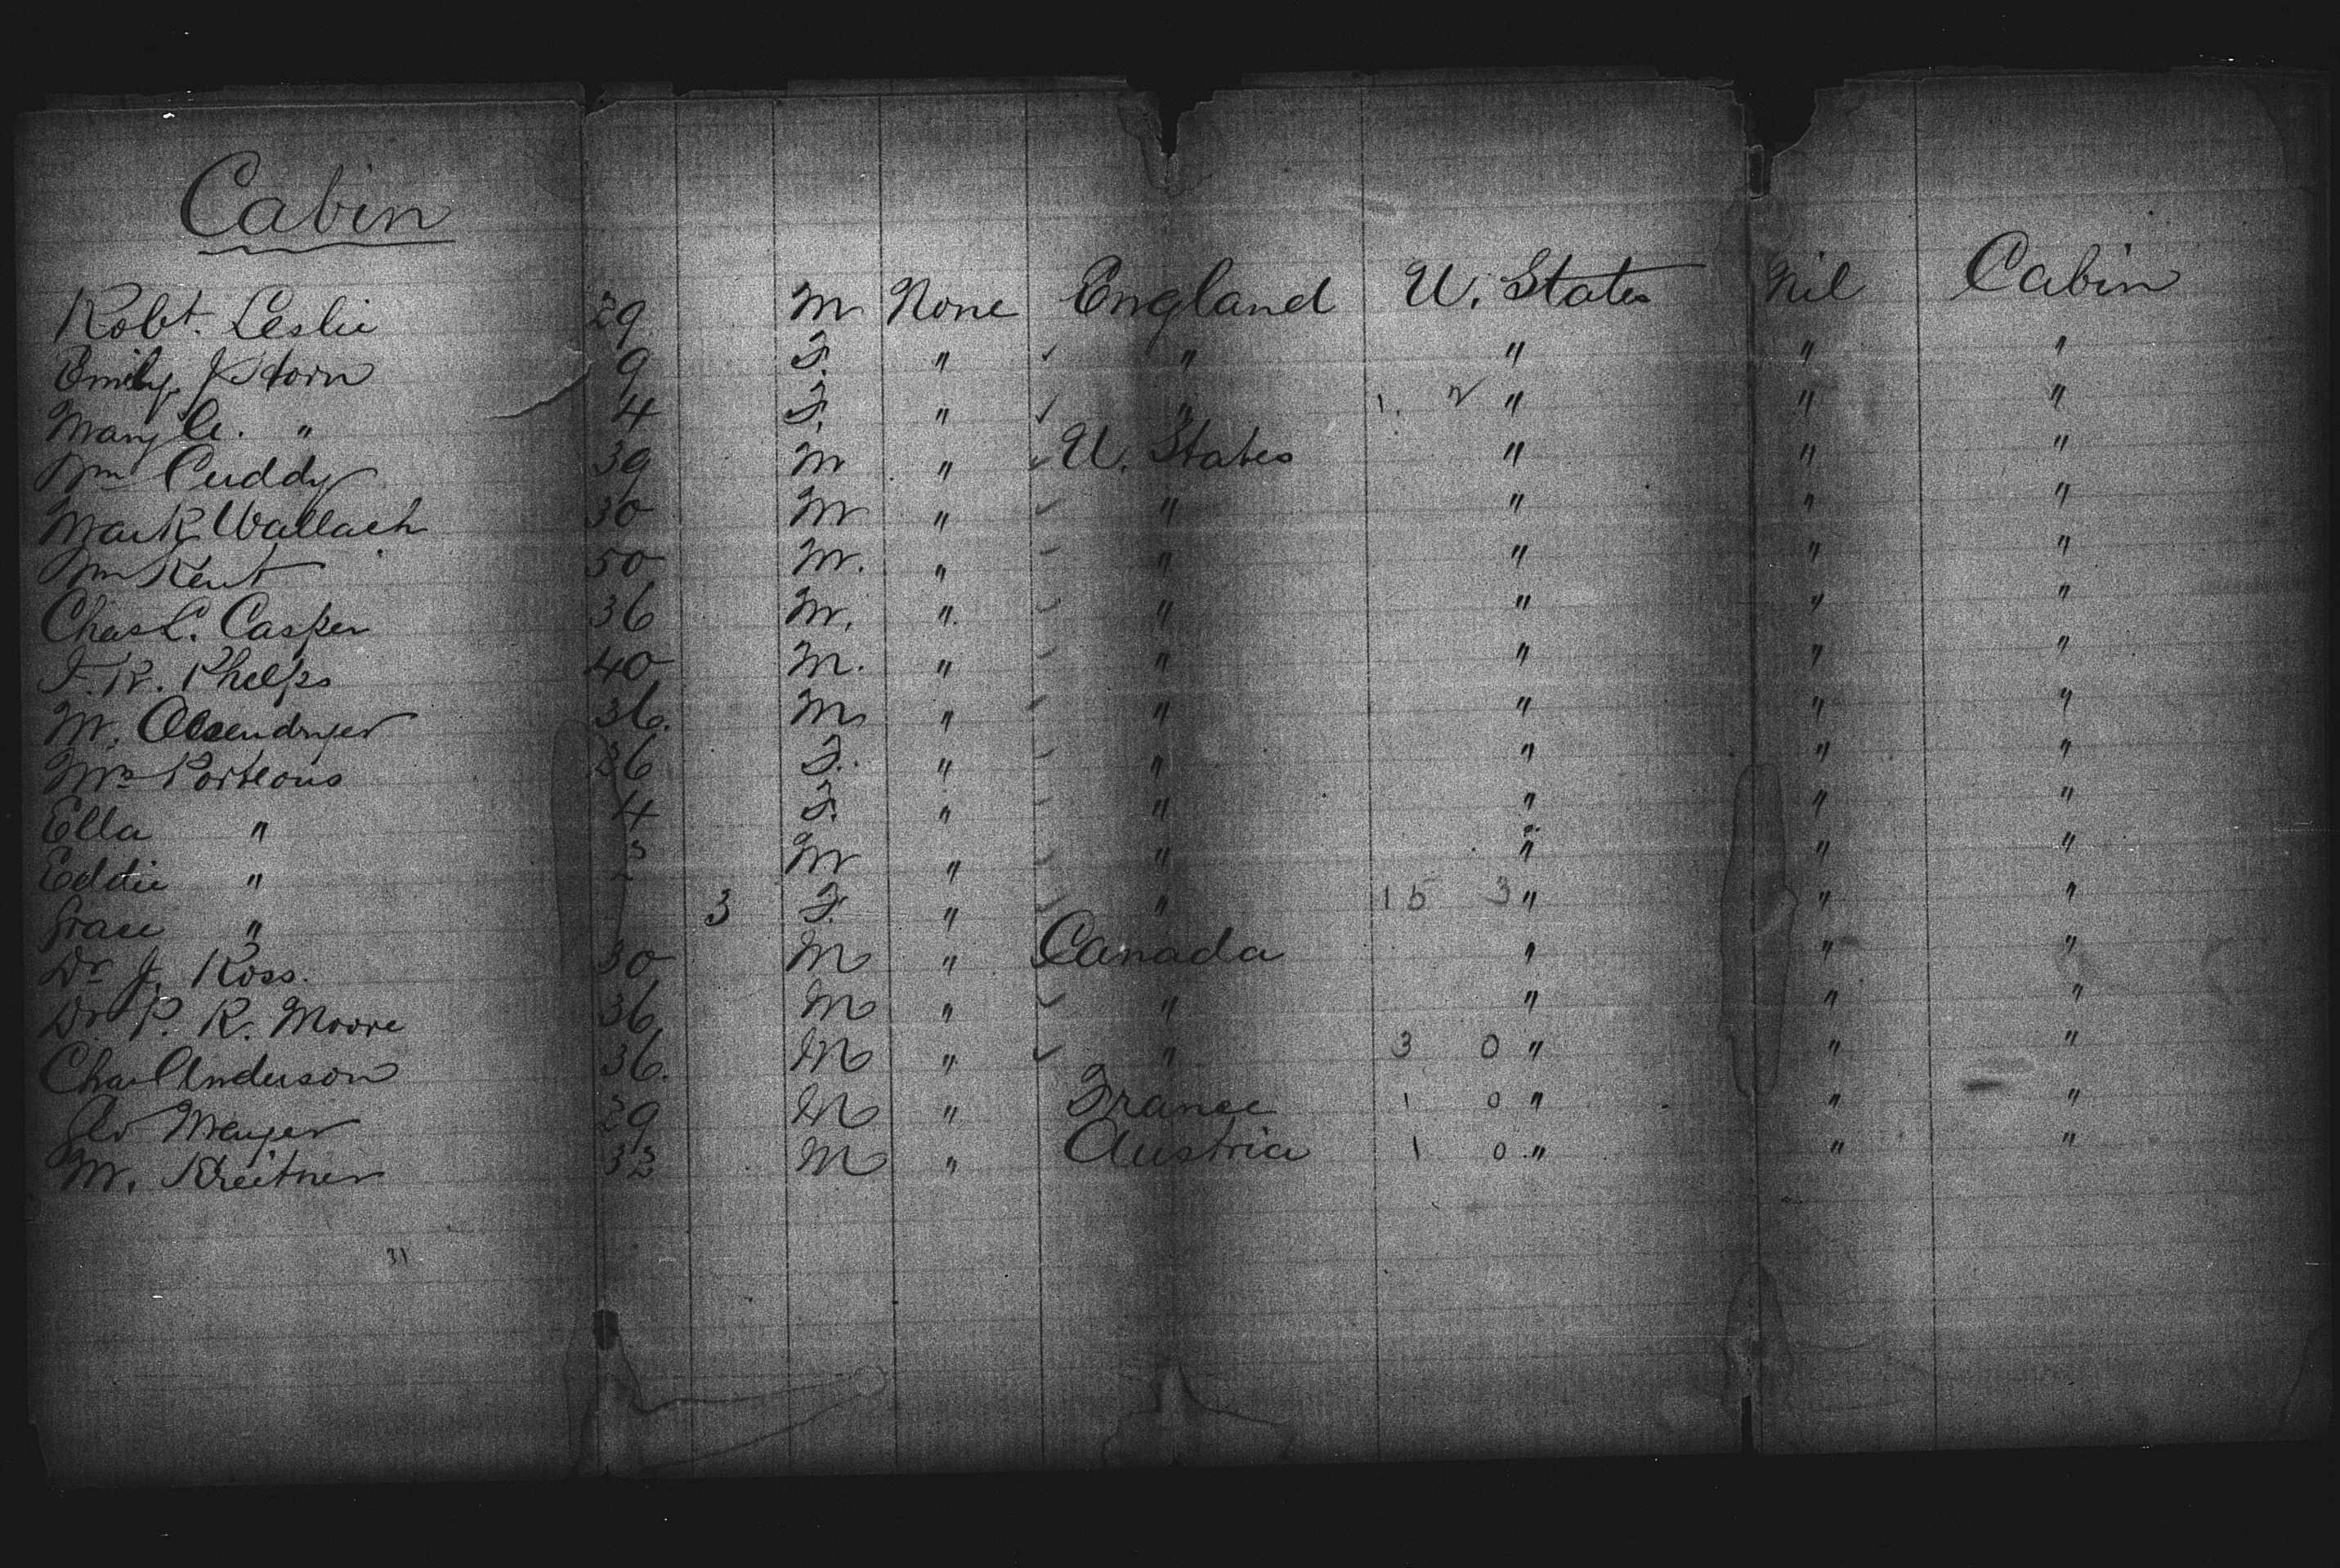 Cabin
Robt. Leslie 29 M None England U. States Nil Cabin
Emily J Horn 9 F. " " " " "
Mary C. " 4 F. " " 1. " " "
Wm Cuddy 39 M " U. States " " "
Mark Wallach 30 M " " " " "
Wm Kent 50 M. " " " " "
Chas L. Casper 36 M. " " " " "
F. R. Phelps 40 M. " " " " "
M. 36. M " " " " "
Mrs Porteous 36 F. " " " " "
Ella " 4 F. " " " " "
Eddie " 2 M " " " " "
Grace " 3 F. " " 15 3 " " "
Dr J. Ross. 30 M " Canada " " "
Dr P. R. Moore 36 M " " " " "
Chas Anderson 36. M " " 3 0 " " "
Geo Mayer 29 M " France 1 0 " " "
M. Kreitner 32 M " Austria 1 0 " " "
31